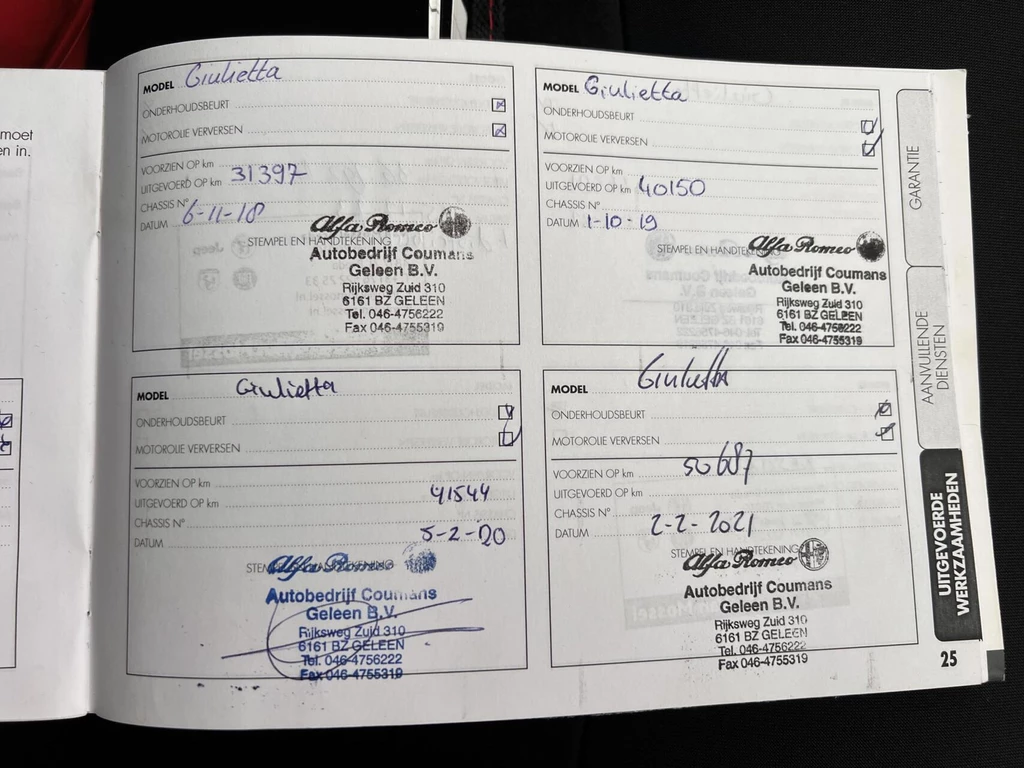 moet
en in.
MODEL Giulietta
ONDERHOUDSBEURT
MOTOROLIE VERVERSEN
VOORZIEN OP km
UITGEVOERD OP km 31397
CHASSIS N°
DATUM 6-11-18
Alfa Romeo
STEMPEL EN HANDTEKENING
Autobedrijf Coumans
Geleen B.V.
Rijksweg Zuid 310
6161 BZ GELEEN
Tel. 046-4756222
Fax 046-4755319
MODEL Giulietta
ONDERHOUDSBEURT
MOTOROLIE VERVERSEN
VOORZIEN OP km
UITGEVOERD OP km 40150
CHASSIS N°
DATUM 1-10-19
STEMPEL EN HANDTEKENING Alfa Romeo
Autobedrijf Coumans
Geleen B.V.
Rijksweg Zuid 310
6161 BZ GELEEN
Tel. 046-4756222
Fax 046-4755319
MODEL Giulietta
ONDERHOUDSBEURT
MOTOROLIE VERVERSEN
VOORZIEN OP km
UITGEVOERD OP km 41544
CHASSIS N°
DATUM 5-2-20
Alfa Romeo
Autobedrijf Coumans
Geleen B.V.
Rijksweg Zuid 310
6161 BZ GELEEN
Tel. 046-4756222
Fax 046-4755319
MODEL Giulietta
ONDERHOUDSBEURT
MOTOROLIE VERVERSEN
VOORZIEN OP km 50687
UITGEVOERD OP km
CHASSIS N°
DATUM 2-2-2021
STEMPEL EN HANDTEKENING
Alfa Romeo
Autobedrijf Coumans
Geleen B.V.
Rijksweg Zuid 310
6161 BZ GELEEN
Tel. 046-4756222
Fax 046-4755319
GARANTIE
AANVULLENDE
DIENSTEN
UITGEVOERDE
WERKZAAMHEDEN
25